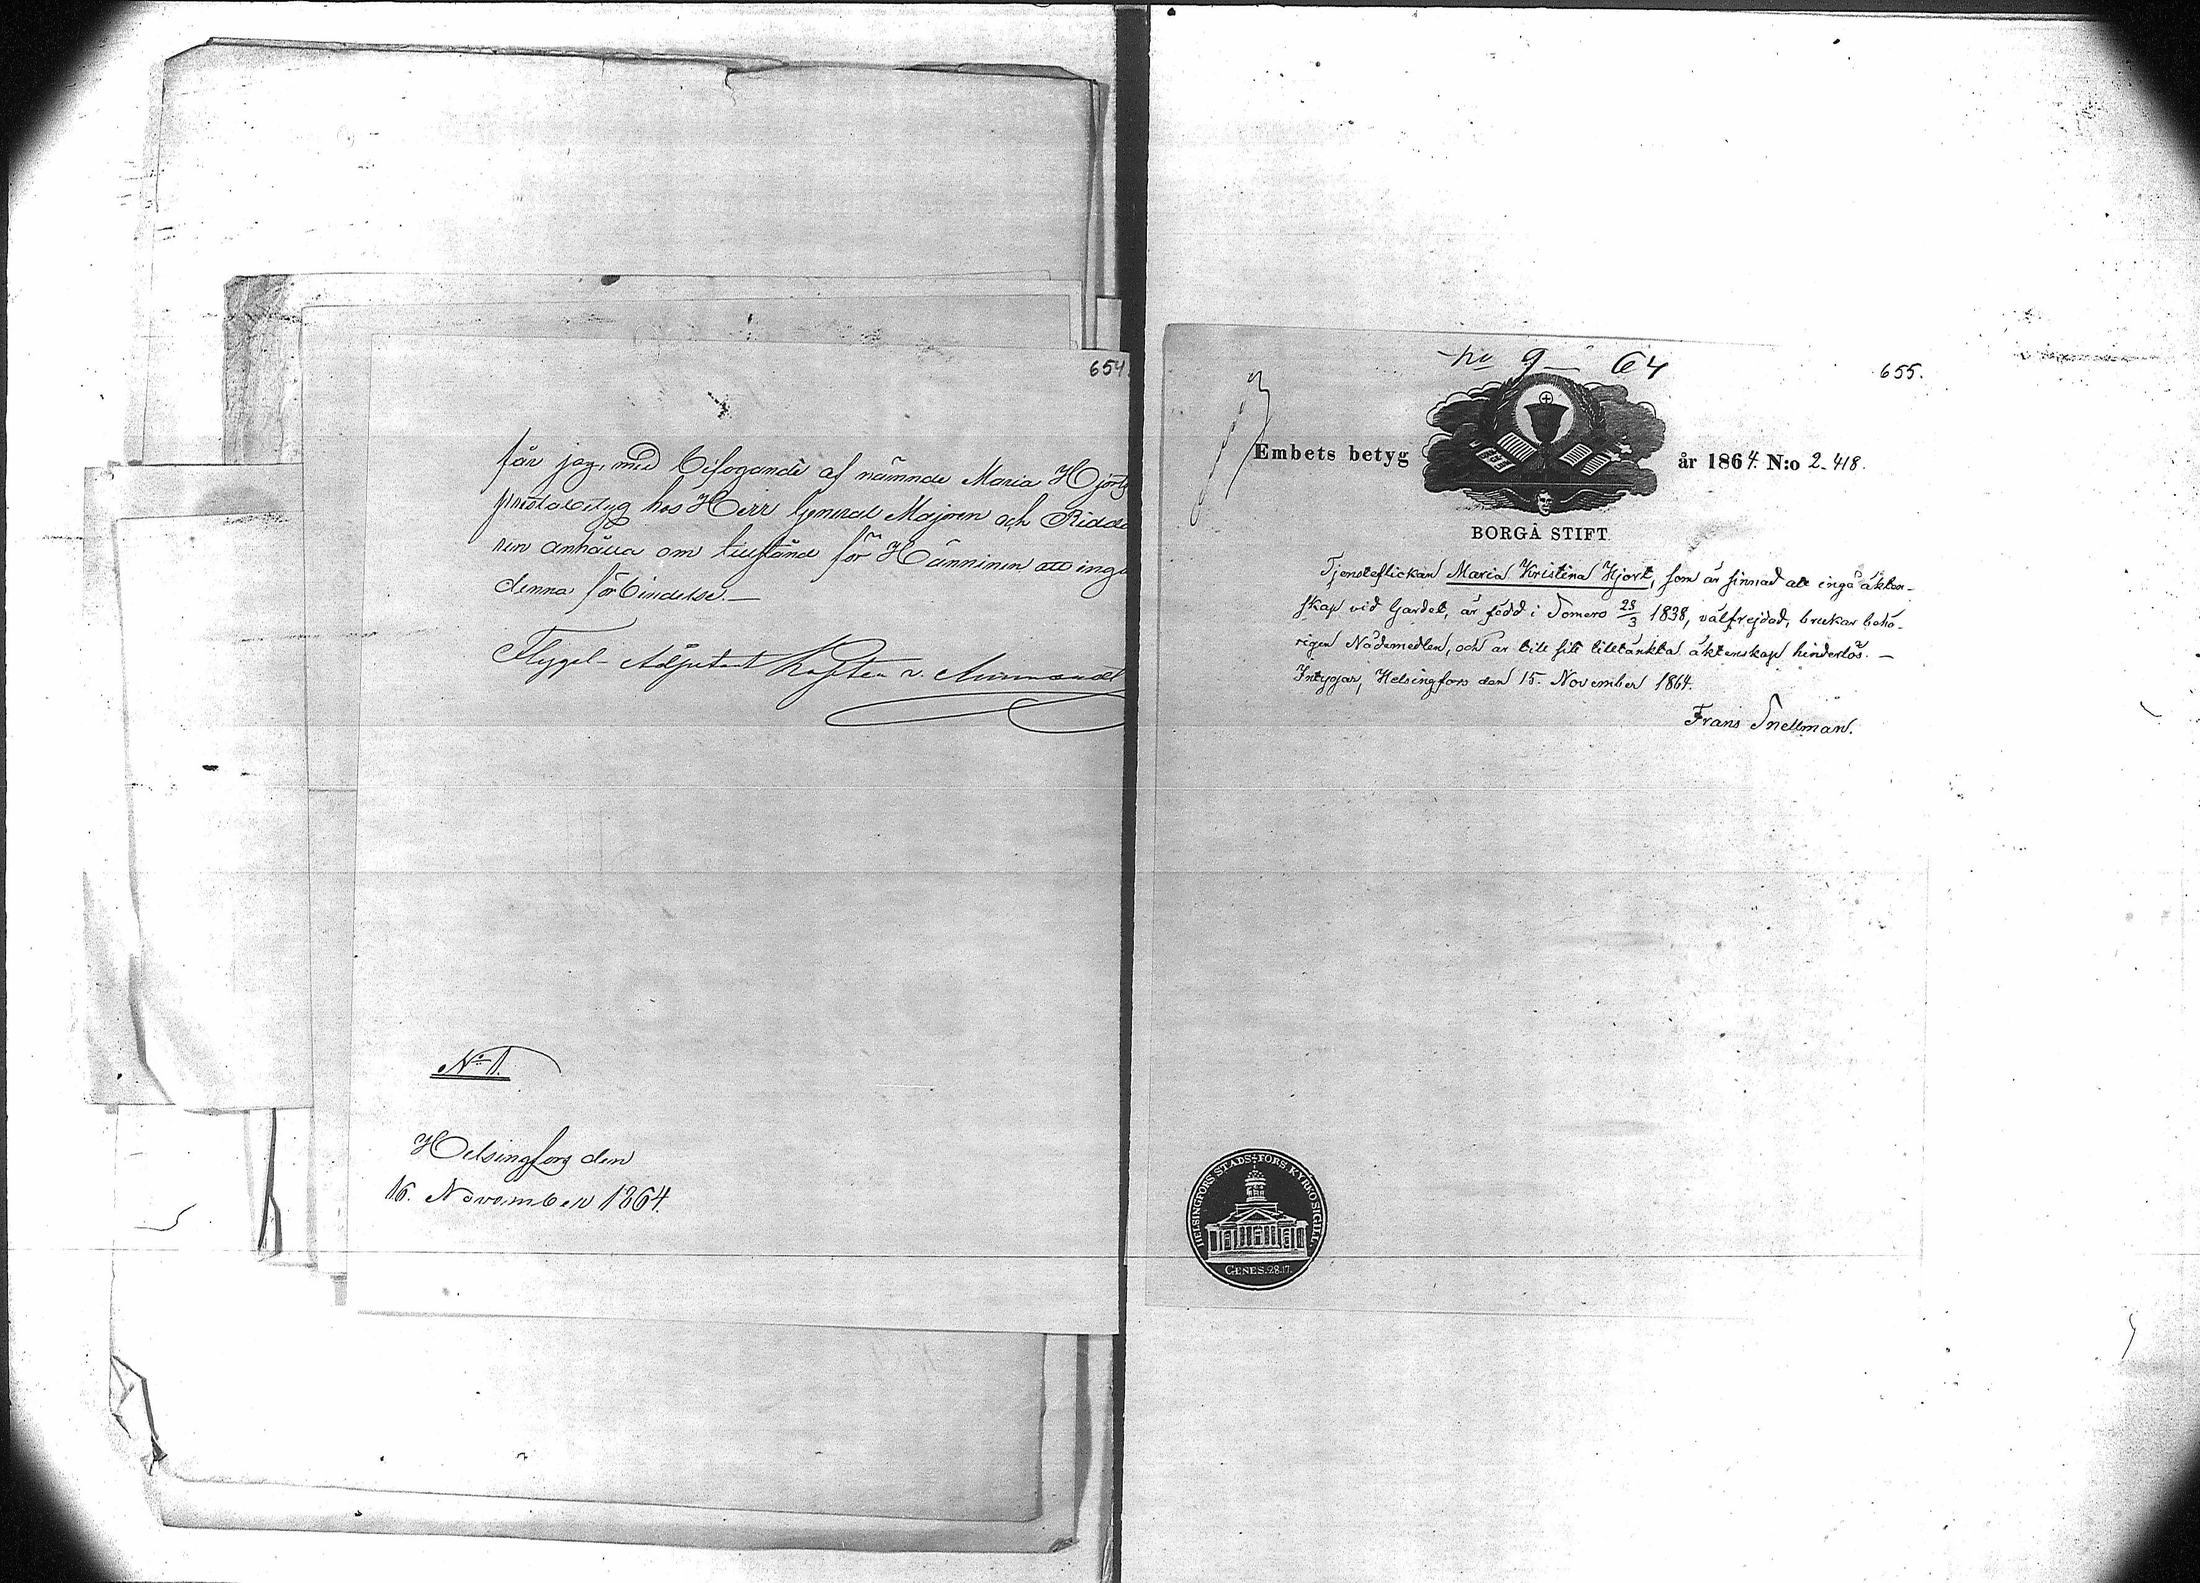 654.
får jag, med bifogande af nämnde Maria Hjorts
prestabetyg hos Herr General Majoren och Ridda
ren anhålla om tillstånd för Hänninen att ingå
denna förbindelse. —
Flygel-Adjutant Kapten v.
No 1.
Helsingfors den
16. November 1864.
No 9 — 64
655.
Embets betyg år 1864. N:o 2418.
BORGÅ STIFT.
Tjensteflickan Maria Kristina Hjort, som är sinnad att ingå äkten-
skap vid Gardet, är född i Somero 23/3 1838, välfrejdad, brukar behö-
rigen Nådemedlen, och är till sitt tilltänkta äktenskap hinderlös. —
Intygar, Helsingfors den 15. November 1864.
Frans Snellman.
HELSINGFORS STADS-FÖRS. KYRKO SIGILL.
GENES. 28.17.